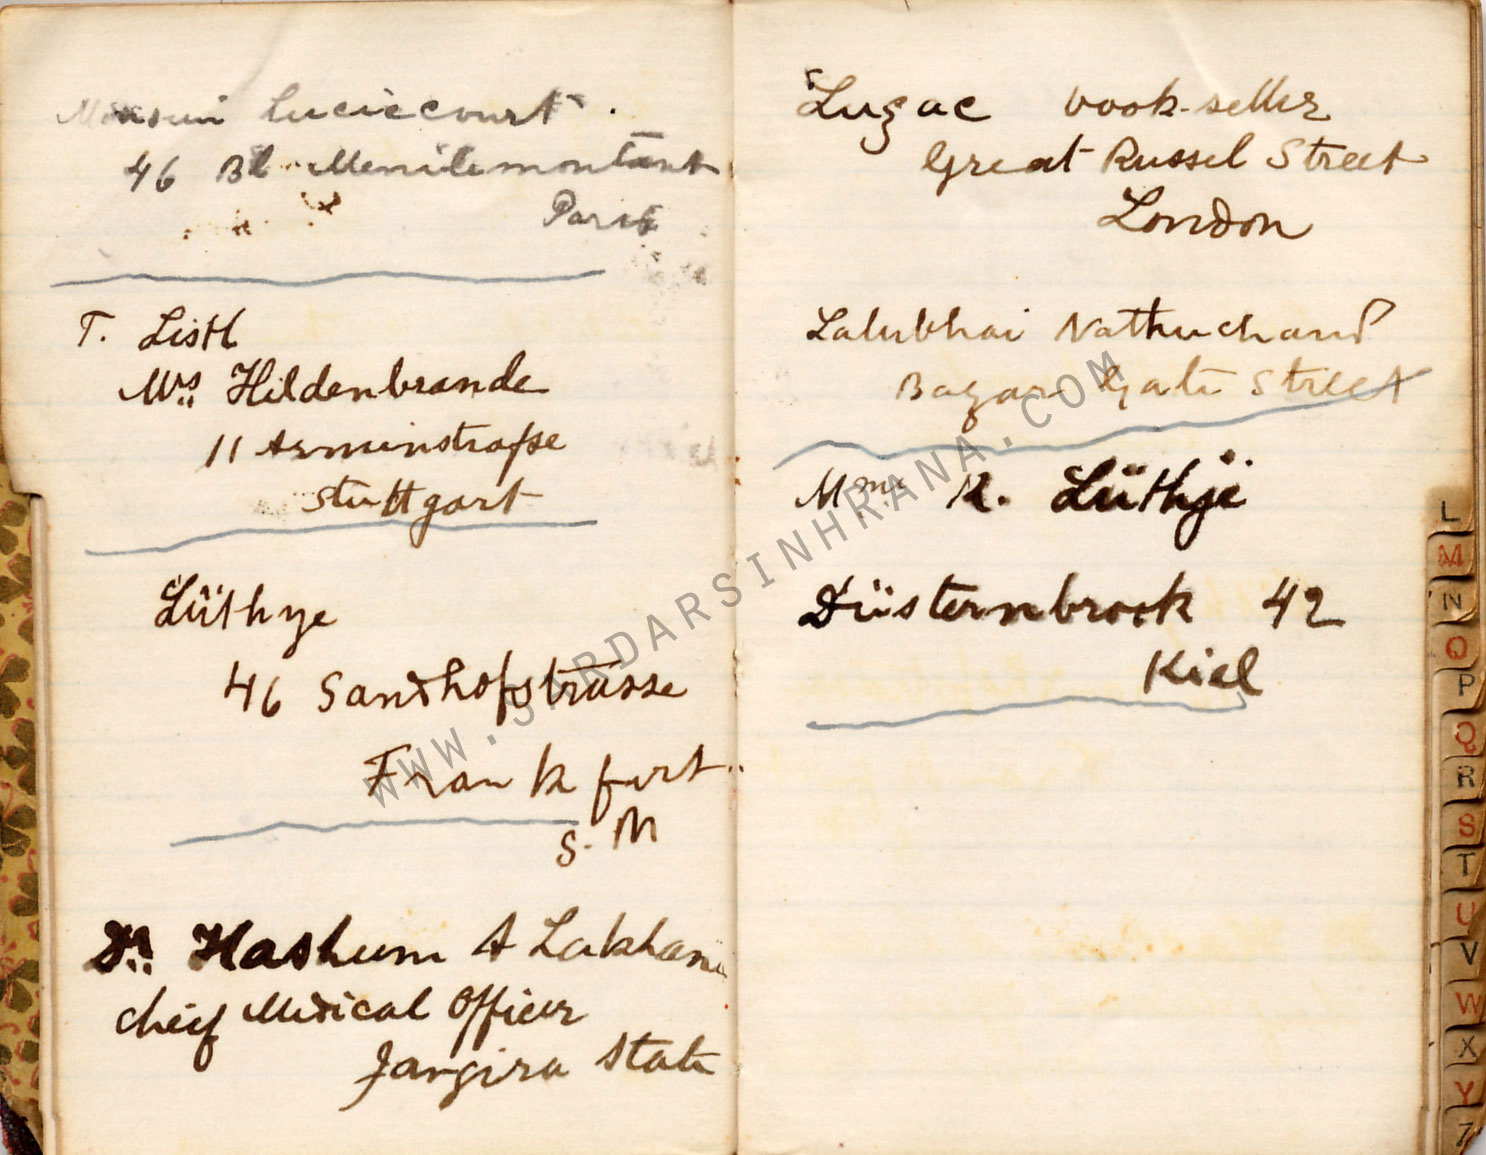 Luciecourt
46 Bd Menilemontant
Paris
T. Listl
Mrs Hildenbrande
11 Arminstrasse
Stuttgart
Lüthye
46 Sandhofstrasse
Frankfurt
S. M
Dr. Hashum A Lakhani
Cheif Medical Officer
Jangira State
Luzac book-seller
Great Russel Street
London
Lalubhai Nathuchand
Bazar Gate Street
Mme K. Lüthje
Düsternbrook 42
Kiel
L
M
N
O
P
Q
R
S
T
U
V
W
X
Y
Z
WWW.SARDARSINHRANA.COM